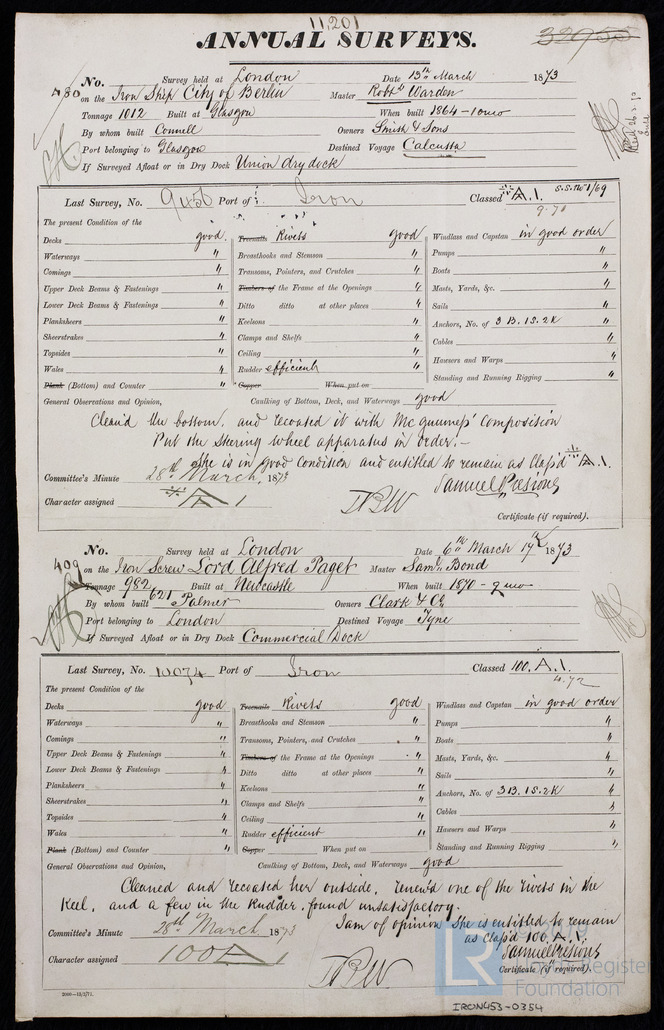 11,201
ANNUAL SURVEYS.
32955
480
No. Survey held at London Date 13th March 1873
on the Iron Ship City of Berlin Master Robt Warden
Tonnage 1012 Built at Glasgow When built 1864 - 10mo
By whom built Connell Owners Smith & Sons
Port belonging to Glasgow Destined Voyage Calcutta
If Surveyed Afloat or in Dry Dock Union dry dock
Last Survey, No. 9456 Port of Iron Classed A.1. S.S. No 1/69
9.70
The present Condition of the
Decks good Treenails Rivets good Windlass and Capstan in good order
Waterways " Breasthooks and Stemson " Pumps "
Comings " Transoms, Pointers, and Crutches " Boats "
Upper Deck Beams & Fastenings " Timbers of the Frame at the Openings " Masts, Yards, &c. "
Lower Deck Beams & Fastenings " Ditto ditto at other places " Sails "
Planksheers " Keelsons " Anchors, No. of 3 B. 1S. 2K "
Sheerstrakes " Clamps and Shelfs " Cables "
Topsides " Ceiling " Hawsers and Warps "
Wales " Rudder efficient Standing and Running Rigging "
Plank (Bottom) and Counter " Copper When put on
General Observations and Opinion, Caulking of Bottom, Deck, and Waterways good
Cleaned the bottom, and recoated it with McGuiness' Composition
Put the Steering wheel apparatus in order.-
She is in good condition and entitled to remain as Class'd A.1.
Committee's Minute 28th March, 1873 Samuel Presious
Character assigned A 1
Certificate (if required).
409
No. Survey held at London Date 6th March 17th 1873
on the Iron Screw Lord Alfred Paget Master Saml Bond
Tonnage 982 Built at Newcastle When built 1870 - 9mo
621
By whom built Palmer Owners Clark & Co
Port belonging to London Destined Voyage Tyne
If Surveyed Afloat or in Dry Dock Commercial Dock
Last Survey, No. 10074 Port of Iron Classed 100.A.1.
4.72
The present Condition of the
Decks good Treenails Rivets good Windlass and Capstan in good order
Waterways " Breasthooks and Stemson " Pumps "
Comings " Transoms, Pointers, and Crutches " Boats "
Upper Deck Beams & Fastenings " Timbers of the Frame at the Openings " Masts, Yards, &c. "
Lower Deck Beams & Fastenings " Ditto ditto at other places " Sails "
Planksheers " Keelsons " Anchors, No. of 3B. 1S. 2K "
Sheerstrakes " Clamps and Shelfs " Cables "
Topsides " Ceiling " Hawsers and Warps "
Wales " Rudder efficient " Standing and Running Rigging "
Plank (Bottom) and Counter " Copper When put on
General Observations and Opinion, Caulking of Bottom, Deck, and Waterways good
Cleaned and recoated her outside, renew'd one of the rivets in the
Keel, and a few in the Rudder, found unsatisfactory.
I am of opinion she is entitled to remain
Committee's Minute 28th March 1873 as class'd 100.A.1.
Samuel Presious
Character assigned 100 A 1
Certificate (if required).
LR Lloyd's Register Foundation
2000-13/2/71.
IRON453-0354